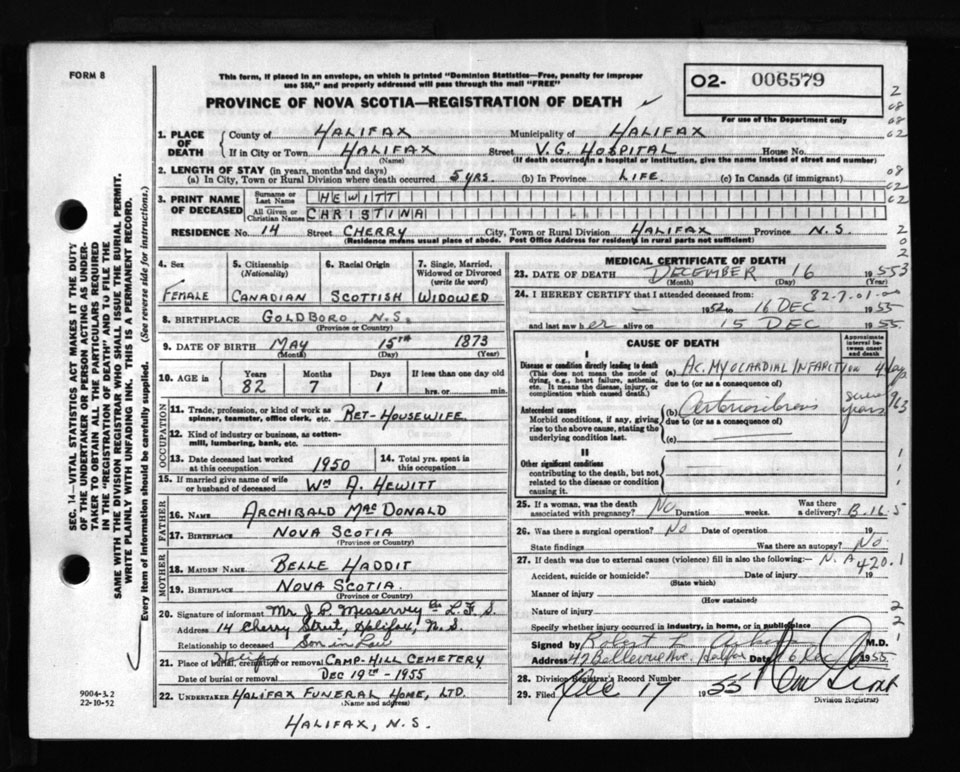 FORM 8
This form, if placed in an envelope, on which is printed "Dominion Statistics—Free, penalty for improper
use $50," and properly addressed will pass through the mail "FREE"
PROVINCE OF NOVA SCOTIA—REGISTRATION OF DEATH
O2- 006579
For use of the Department only
1. PLACE OF DEATH
County of HALIFAX Municipality of HALIFAX
If in City or Town HALIFAX Street V.G. HOSPITAL House No.
(Name) (If death occurred in a hospital or institution, give the name instead of street and number)
2. LENGTH OF STAY (in years, months and days)
(a) In City, Town or Rural Division where death occurred 5 YRS. (b) In Province LIFE. (c) In Canada (if immigrant)
3. PRINT NAME OF DECEASED
Surname or Last Name HEWITT
All Given or Christian Names CHRISTINA
RESIDENCE No. 14 Street CHERRY City, Town or Rural Division HALIFAX Province N.S.
(Residence means usual place of abode. Post Office Address for residents in rural parts not sufficient)
4. Sex FEMALE
5. Citizenship (Nationality) CANADIAN
6. Racial Origin SCOTTISH
7. Single, Married, Widowed or Divorced (write the word) WIDOWED
8. BIRTHPLACE GOLDBORO, N.S.
(Province or Country)
9. DATE OF BIRTH MAY 15TH 1873
(Month) (Day) (Year)
10. AGE in Years Months Days If less than one day old
82 7 1 hrs. or min.
OCCUPATION
11. Trade, profession, or kind of work as spinner, teamster, office clerk, etc. RET-HOUSEWIFE.
12. Kind of industry or business, as cotton-mill, lumbering, bank, etc.
13. Date deceased last worked at this occupation 1950
14. Total yrs. spent in this occupation
15. If married give name of wife or husband of deceased WM A. HEWITT
FATHER
16. NAME ARCHIBALD MACDONALD
17. BIRTHPLACE NOVA SCOTIA
(Province or Country)
MOTHER
18. MAIDEN NAME BELLE HADDIT
19. BIRTHPLACE NOVA SCOTIA.
(Province or Country)
20. Signature of informant Mr. J. P. Misservey L.F.S.
Address 14 Cherry Street, Halifax, N.S.
Relationship to deceased Son in Law
21. Place of burial, cremation or removal Halifax CAMP-HILL CEMETERY
Date of burial or removal DEC 19TH - 1955
22. UNDERTAKER HALIFAX FUNERAL HOME, LTD.
(Name and address)
HALIFAX, N.S.
MEDICAL CERTIFICATE OF DEATH
23. DATE OF DEATH DECEMBER 16 1955
(Month) (Day) (Year)
24. I HEREBY CERTIFY that I attended deceased from:
1952 to 16 DEC 1955
and last saw her alive on 15 DEC 1955.
CAUSE OF DEATH
Approximate interval between onset and death
I
Disease or condition directly leading to death
(This does not mean the mode of dying, e.g., heart failure, asthenia, etc. It means the disease, injury, or complication which caused death.)
(a) AC. MYOCARDIAL INFARCTION 4 days
due to (or as a consequence of)
Antecedent causes
Morbid conditions, if any, giving rise to the above cause, stating the underlying condition last.
(b) Arteriosclerosis years
due to (or as a consequence of)
(c)
II
Other significant conditions
contributing to the death, but not related to the disease or condition causing it.
25. If a woman, was the death associated with pregnancy? NO Duration weeks. Was there a delivery?
26. Was there a surgical operation? NO Date of operation 19
State findings Was there an autopsy? NO.
27. If death was due to external causes (violence) fill in also the following:— N.A 420.1
Accident, suicide or homicide? Date of injury 19
(State which)
Manner of injury
(How sustained)
Nature of injury
Specify whether injury occurred in industry, in home, or in public place
Signed by Robert L. M.D.
Address 42 Bellevue Ave. Halifax Date 16 Dec 1955
28. Division Registrar's Record Number
29. Filed Dec 17 1955
Division Registrar
SEC. 14—VITAL STATISTICS ACT MAKES IT THE DUTY
OF THE UNDERTAKER OR PERSON ACTING AS UNDER-
TAKER TO OBTAIN ALL THE PARTICULARS REQUIRED
IN THE "REGISTRATION OF DEATH" AND TO FILE THE
SAME WITH THE DIVISION REGISTRAR WHO SHALL ISSUE THE BURIAL PERMIT.
WRITE PLAINLY WITH UNFADING INK. THIS IS A PERMANENT RECORD.
Every item of information should be carefully supplied. (See reverse side for instructions.)
9004-3.2
22-10-52